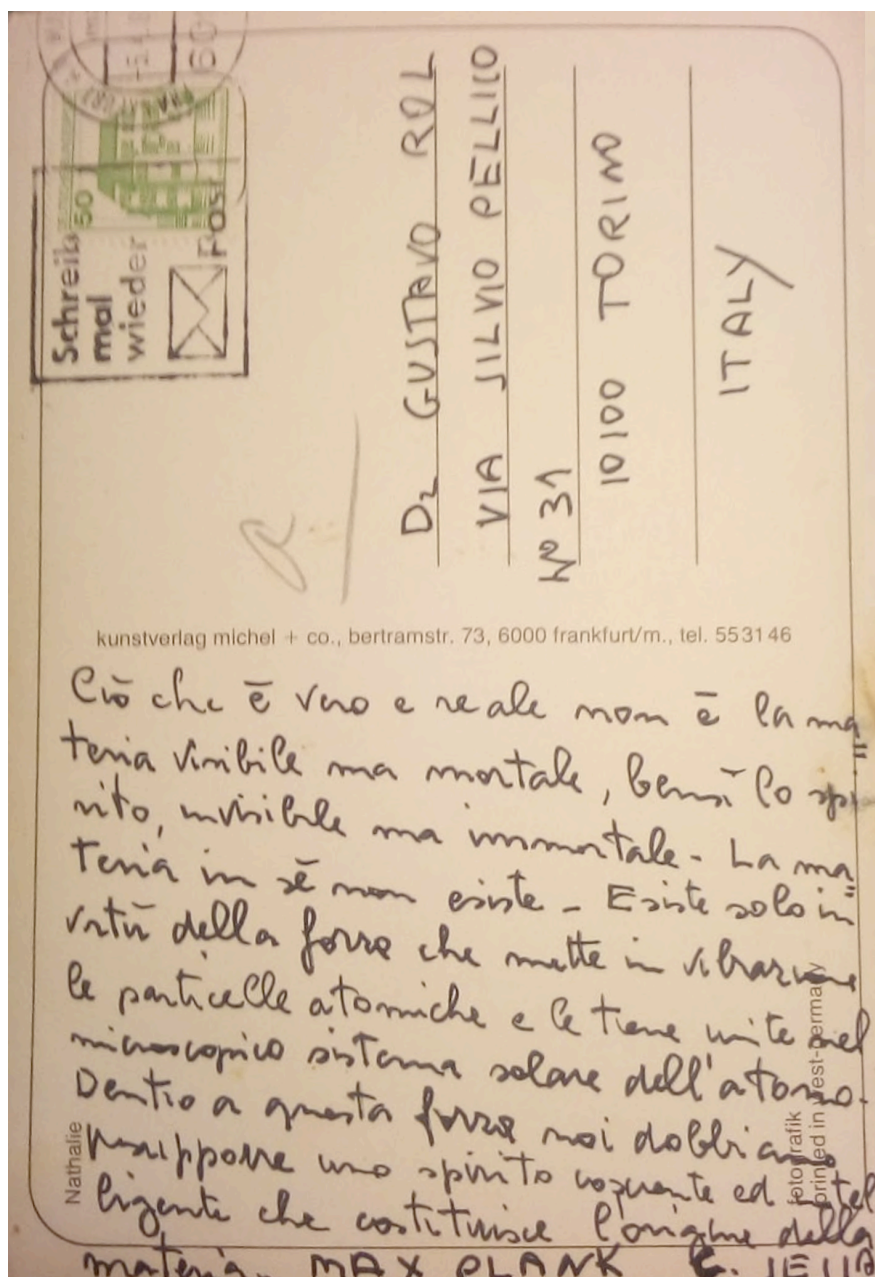 Schreib
mal
wieder
Post
50
60
Dr GUSTAVO ROL
VIA SILVIO PELLICO
Nº 31
10100 TORINO
ITALY
kunstverlag michel + co., bertramstr. 73, 6000 frankfurt/m., tel. 553146
Ciò che è vero e reale non è la ma
teria visibile ma mortale, bensì lo spi
rito, invisibile ma immortale - La ma
teria in sé non esiste - Esiste solo in
virtù della forza che mette in vibrazione
le particelle atomiche e le tiene unite nel
microscopico sistema solare dell'atomo.
Dentro a questa forza noi dobbiamo
presupporre uno spirito cosciente ed intel
ligente che costituisce l'origine della
materia. MAX PLANK
Nathalie
fotografik
printed in west-germany